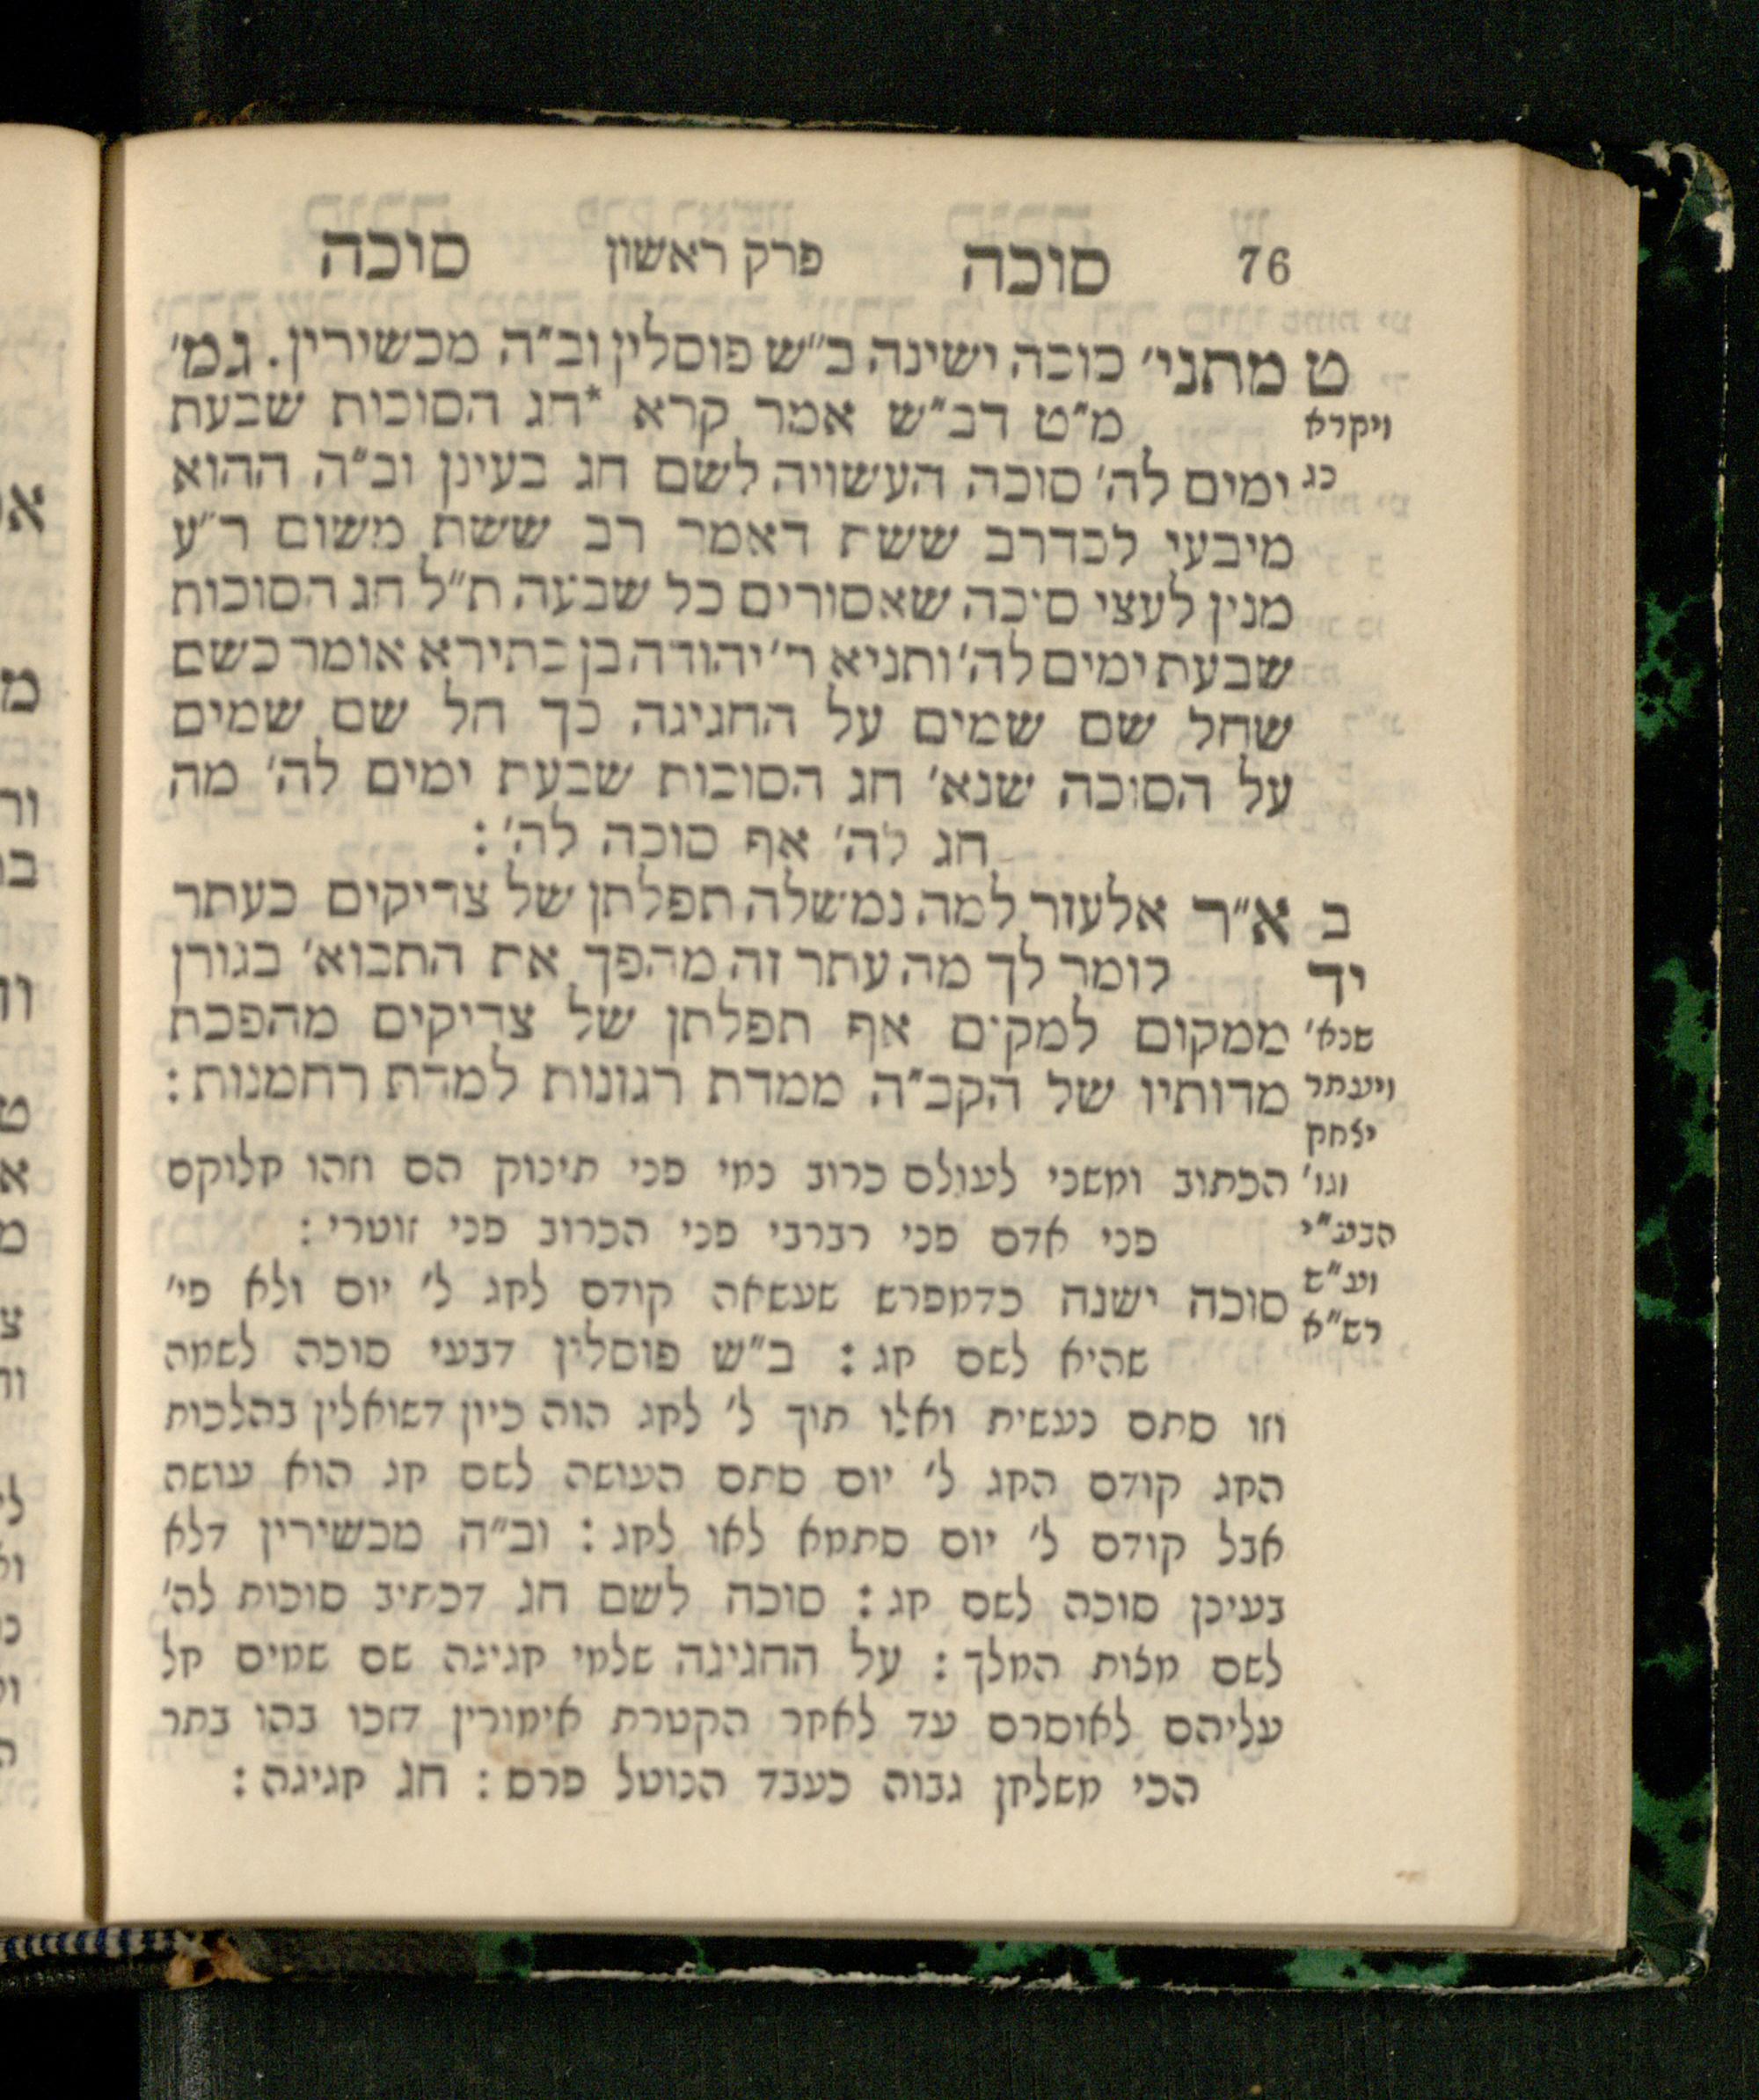 76 סוכה פרק ראשון סוכה
ט מתני׳ סוכה ישינה ב״ש פוסלין וב״ה מכשירין. גמ׳
ויקרא מ״ט דב״ש אמר קרא *חג הסוכות שבעת
כג ימים לה׳ סוכה העשויה לשם חג בעינן וב״ה ההוא
מיבעי לכדרב ששת דאמר רב ששת משום ר״ע
מנין לעצי סוכה שאסורים כל שבעה ת״ל חג הסוכות
שבעת ימים לה׳ ותניא ר׳ יהודה בן בתירא אומר כשם
שחל שם שמים על החגיגה כך חל שם שמים
על הסוכה שנא׳ חג הסוכות שבעת ימים לה׳ מה
חג לה׳ אף סוכה לה׳ :
ב א״ר אלעזר למה נמשלה תפלתן של צדיקים כעתר
יד לומר לך מה עתר זה מהפך את התבוא׳ בגורן
שנא׳ ממקום למקום אף תפלתן של צדיקים מהפכת
ויעתר מדותיו של הקב״ה ממדת רגזנות למדת רחמנות :
יצחק
וגו׳ הכתוב ומשני לעולם כרוב כמי פני תינוק הם וזהו חלוקם
הבע״י פני אדם פני רברבי פני הכרוב פני זוטרי :
וע״ש סוכה ישנה כדמפרש שעשאה קודם לחג ל׳ יום ולא פי׳
רש״א שהיא לשם חג : ב״ש פוסלין דבעי סוכה לשמה
וזו סתם נעשית ואלו תוך ל׳ לחג הוה כיון דשואלין בהלכות
החג קודם החג ל׳ יום סתם העושה לשם חג הוא עושה
אבל קודם ל׳ יום סתמא לאו לחג : וב״ה מכשירין דלא
בעינן סוכה לשם חג : סוכה לשם חג דכתיב סוכות לה׳
לשם מצות המלך : על החגיגה שלמי חגיגה שם שמים חל
עליהם לאוסרם עד לאחר הקטרת אימורין דזכו בהו בתר
הכי משלחן גבוה כעבד הנוטל פרס : חג חגיגה :